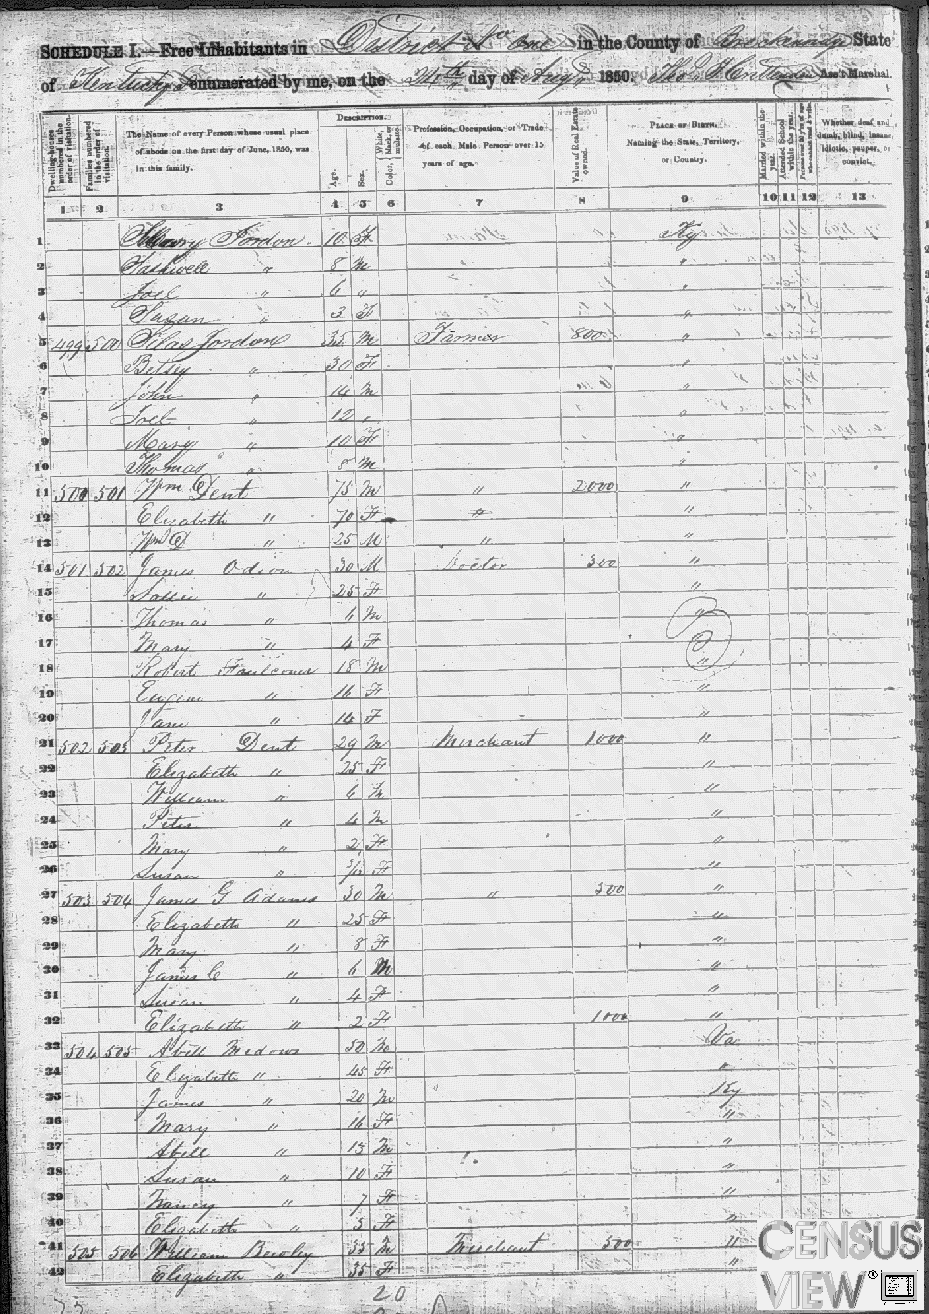 SCHEDULE I.—Free Inhabitants in District No one in the County of State
of Kentucky enumerated by me, on the day of Augt 1850. Ass't Marshal.
Dwelling-houses numbered in the order of visitation.
Families numbered in the order of visitation.
The Name of every Person whose usual place of abode on the first day of June, 1850, was in this family.
DESCRIPTION.
Age.
Sex.
Color, White, black, or mulatto.
Profession, Occupation, or Trade of each Male Person over 15 years of age.
Value of Real Estate owned.
PLACE OF BIRTH. Naming the State, Territory, or Country.
Married within the year.
Attended School within the year.
Whether deaf and dumb, blind, insane, idiotic, pauper, or convict.
1 2 3 4 5 6 7 8 9 10 11 12 13
1 Jordon 10 F Ky
2 " 8 M "
3 Joel " 6 " "
4 Susan " 3 F "
5 499 500 Silas Jordon 35 M Farmer 800 "
6 Betsy " 30 F
7 John " 14 M "
8 Joel " 12 " "
9 Mary " 10 F "
10 Thomas " 8 M "
11 500 501 Wm Dent 75 M " 2000 "
12 Elizabeth " 70 F "
13 Wm " 25 M " "
14 501 502 James Odion 30 M Doctor 300 "
15 Sallie " 25 F "
16 Thomas " 6 M "
17 Mary " 4 F "
18 Robert Faulconer 18 M "
19 Eugene " 16 F "
20 Jane " 14 F "
21 502 503 Peter Dent 29 M Merchant 1000 "
22 Elizabeth " 25 F "
23 William " 6 M "
24 Peter " 4 M "
25 Mary " 2 F "
26 Susan " F "
27 503 504 James G Adams 30 M " 500 "
28 Elizabeth " 25 F "
29 Mary " 8 F "
30 James C " 6 M "
31 Susan " 4 F "
32 Elizabeth " 2 F 1000 "
33 504 505 Abill Medows 50 M Va
34 Elizabeth " 45 F "
35 James " 20 M Ky
36 Mary " 16 F "
37 Abill " 13 M "
38 Susan " 10 F "
39 Nancy " 7 F "
40 Elizabeth " 5 F "
41 505 506 William Bewley 55 M Merchant 500 "
42 Elizabeth " 35 F "
20
CENSUS
VIEW®